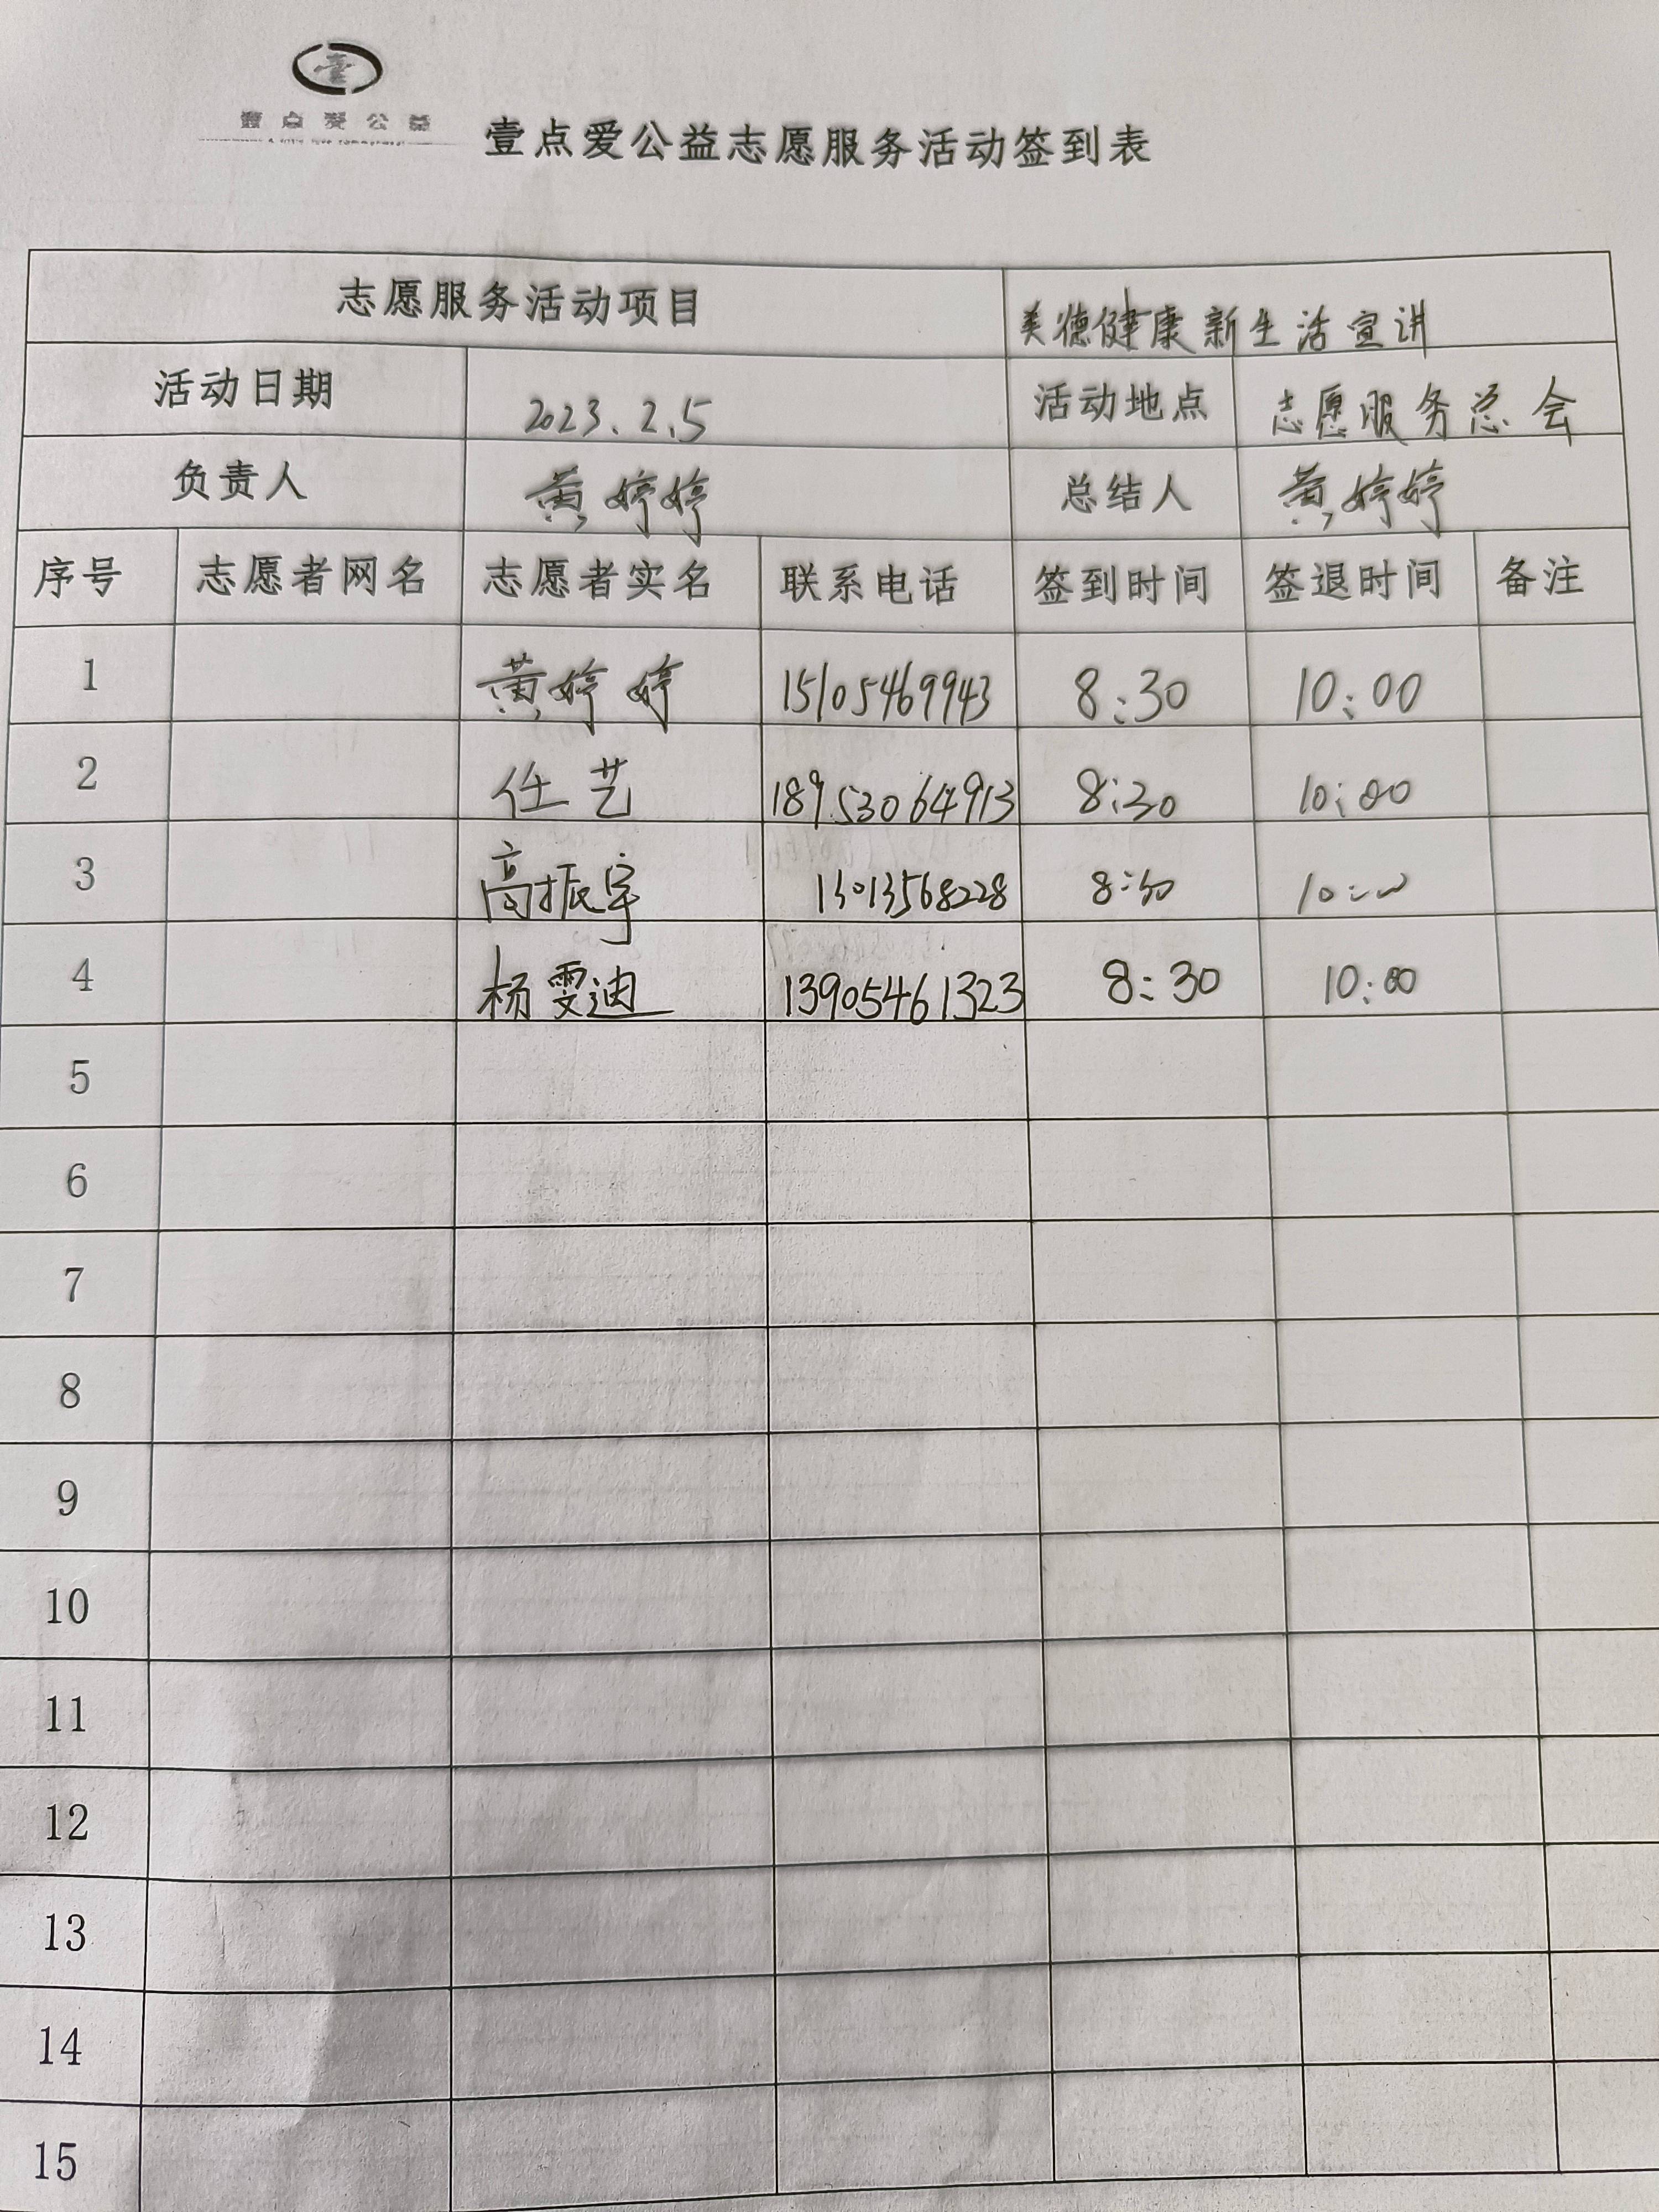 壹
壹点爱公益
壹点爱公益志愿服务活动签到表
志愿服务活动项目 美德健康新生活宣讲
活动日期 2023.2.5 活动地点 志愿服务总会
负责人 黄婷婷 总结人 黄婷婷
序号 志愿者网名 志愿者实名 联系电话 签到时间 签退时间 备注
1 黄婷婷 15105469943 8:30 10:00
2 任艺 18953064913 8:30 10:00
3 高振宇 13013568228 8:30 10:00
4 杨雯迪 13905461323 8:30 10:00
5
6
7
8
9
10
11
12
13
14
15